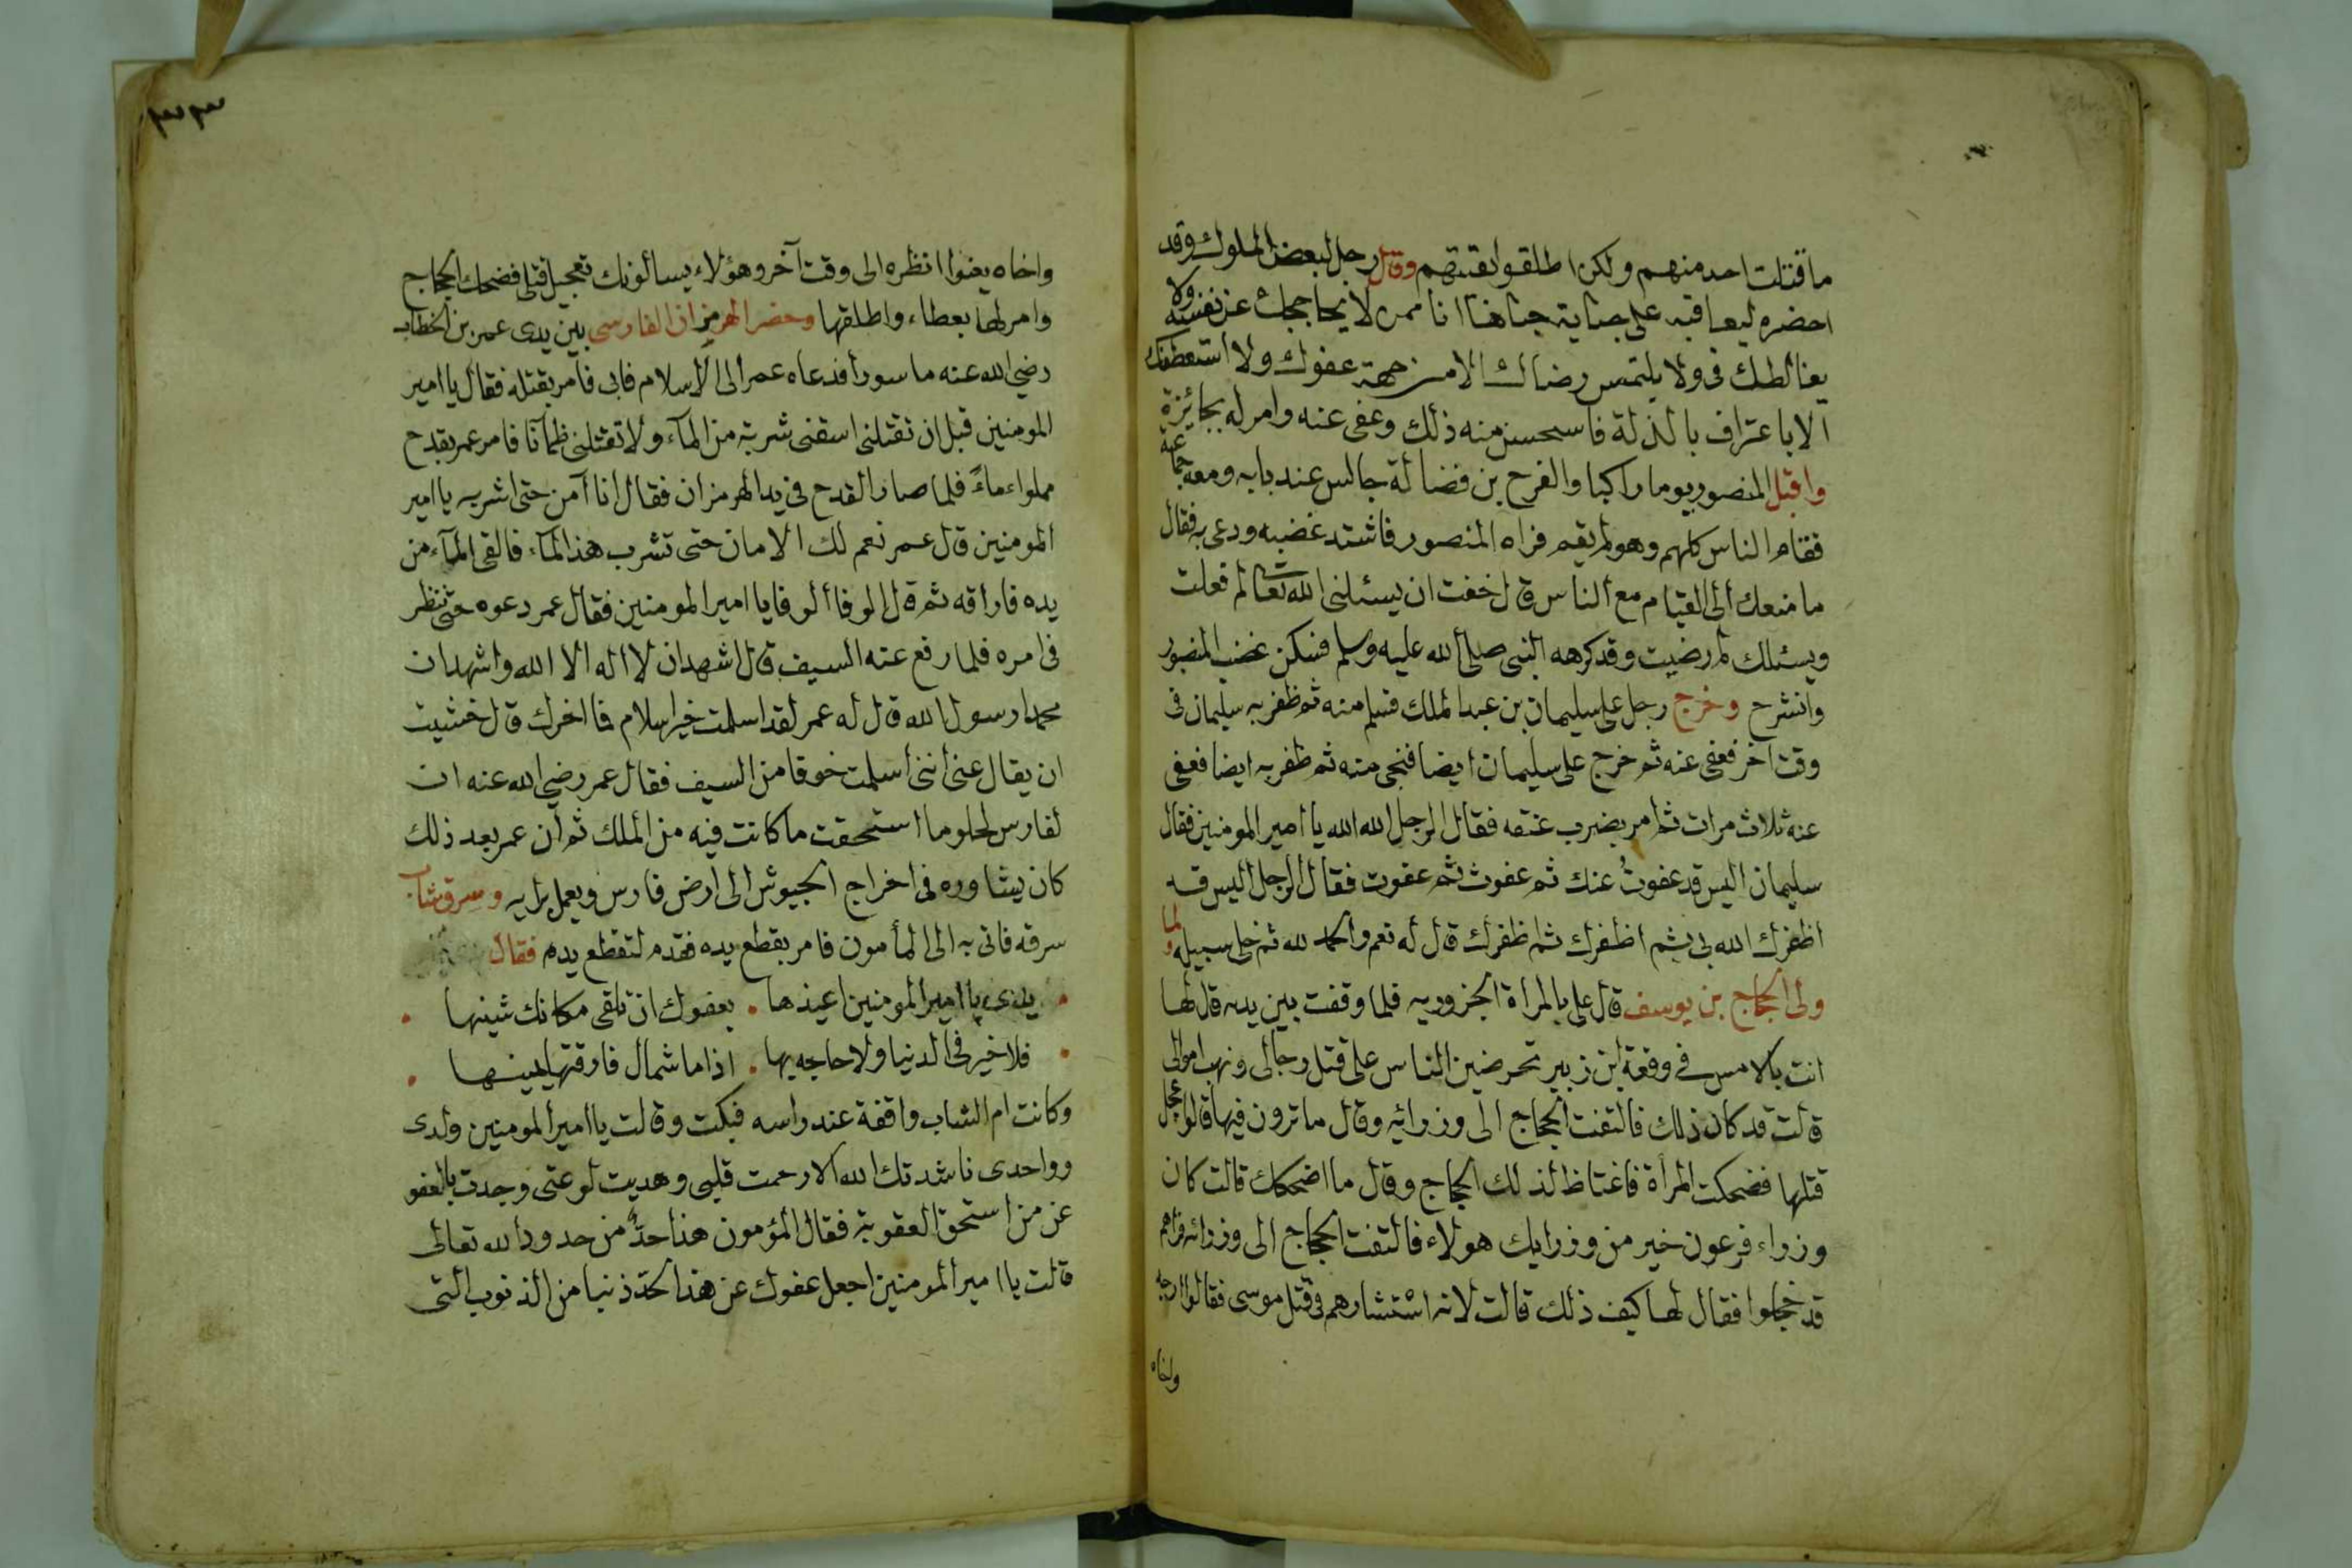 ما قتلت احد منهم ولكن اطلقوا بقيتهم وقال رجل لبعض الملوك وقد
احضره ليعاقبه على جناية جناها انا ممن لا يحاججك عن نفسه ولا
يغالطك فى ولا يلتمس رضاك الا من جهة عفوك ولا استعطفك
الا باعتراف بالذلة فاستحسن منه ذلك وعفى عنه وامر له بجائزة
واقبل المنصور يوما راكبا والفرح بن فضالة جالس عند بابه ومعه جماعة
فقام الناس كلهم وهو لم يقم فراه المنصور فاشتد غضبه ودعى به فقال
ما منعك الى القيام مع الناس قال خفت ان يسئلنى الله تعالى لم فعلت
ويسئلك لم رضيت وقد كرهه النبى صلى الله عليه وسلم فسكن غضب المنصور
وانشرح وخرج رجل على سليمان بن عبد الملك فسلم منه ثم ظفر به سليمان فى
وقت اخر فعفى عنه ثم خرج على سليمان ايضا فنجى منه ثم ظفر به ايضا فعفى
عنه ثلاث مرات ثم امر بضرب عنقه فقال الرجل الله الله يا امير المومنين فقال
سليمان اليس قد عفوت عنك ثم عفوت ثم عفوت فقال الرجل اليس قد
اظفرك الله بى ثم اظفرك ثم اظفرك قال له نعم والحمد لله ثم خلى سبيله ولما
ولى الحجاج بن يوسف قال على بالمراة الحزوريه فلما وقفت بين يديه قال لها
انت بالامس فى وقعة ابن زبير تحرضين الناس على قتل رجالى ونهب اموالى
قالت قد كان ذلك فالتفت الحجاج الى وزرائه وقال ما ترون فيها قالوا عجل
قتلها فضحكت المرأة فاغتاظ لذلك الحجاج وقال ما اضحكك قالت كان
وزراء فرعون خير من وزرايك هولاء فالتفت الحجاج الى وزرائه فراهم
قد خجلوا فقال لها كيف ذلك قالت لانه استشارهم فى قتل موسى فقالوا ارجه
واخاه
واخاه يعنوا انظره الى وقت آخر وهؤلاء يسالونك تعجيل قتلى فضحك الحجاج
وامر لها بعطاء واطلقها وحضر الهرمزان الفارسى بين يدى عمر بن الخطاب
رضى الله عنه ماسورا فدعاه عمر الى الاسلام فابى فامر بقتله فقال يا امير
المومنين قبل ان تقتلنى اسقنى شربة من المآء ولا تقتلنى ظمآنا فامر عمر بقدح
مملواء ماءً فلما صار القدح فى يد الهرمزان فقال انا آمن حتى اشربه يا امير
المومنين قال عمر نعم لك الامان حتى تشرب هذا المآء فالقى المآء من
يده فاراقه ثم قال الوفا الوفا يا امير المومنين فقال عمر دعوه حتى ننظر
فى امره فلما رفع عنه السيف قال اشهد ان لا اله الا الله واشهد ان
محمدا رسول الله قال له عمر لقد اسلمت خير اسلام فما اخرك قال خشيت
ان يقال عنى اننى اسلمت خوفا من السيف فقال عمر رضى الله عنه ان
لفارس لحلوما استحقت ما كانت فيه من الملك ثم ان عمر بعد ذلك
كان يشاوره فى اخراج الجيوش الى ارض فارس ويعمل برايه وسرق شاب
سرقه فاتى به الى المأمون فامر بقطع يده فقدم لتقطع يده فقال
يدى يا امير المومنين اعيذها . بعفوك ان تلقى مكانك شينها
فلا خير فى الدنيا ولا حاجه بها . اذا ما شمال فارقتها يمينها
وكانت ام الشاب واقفة عند راسه فبكت وقالت يا امير المومنين ولدى
وواحدى ناشدتك الله الا رحمت قلبى وهديت لوعتى وجدت بالعفو
عن من استحق العقوبة فقال المؤمون هذا حدٌ من حدود الله تعالى
قالت يا امير المومنين اجعل عفوك عن هذا الحد ذنبا من الذنوب التى